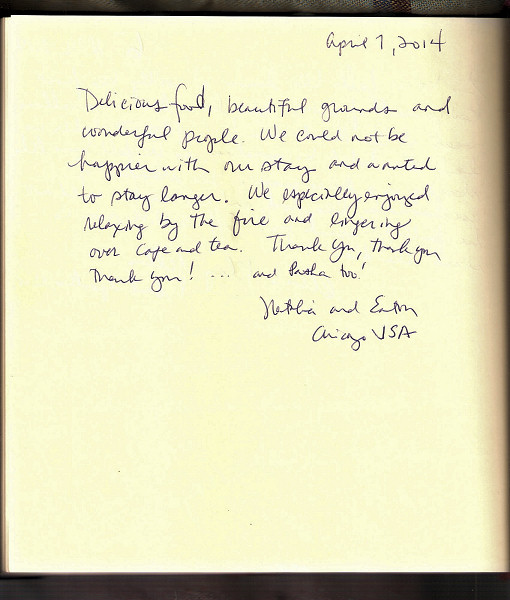 April 7, 2014
Delicious food, beautiful grounds and
wonderful people. We could not be
happier with our stay and wanted
to stay longer. We especially enjoyed
relaxing by the fire and lingering
over cafe and tea. Thank you, thank you
thank you! ... and Pasha too!
and
Chicago USA